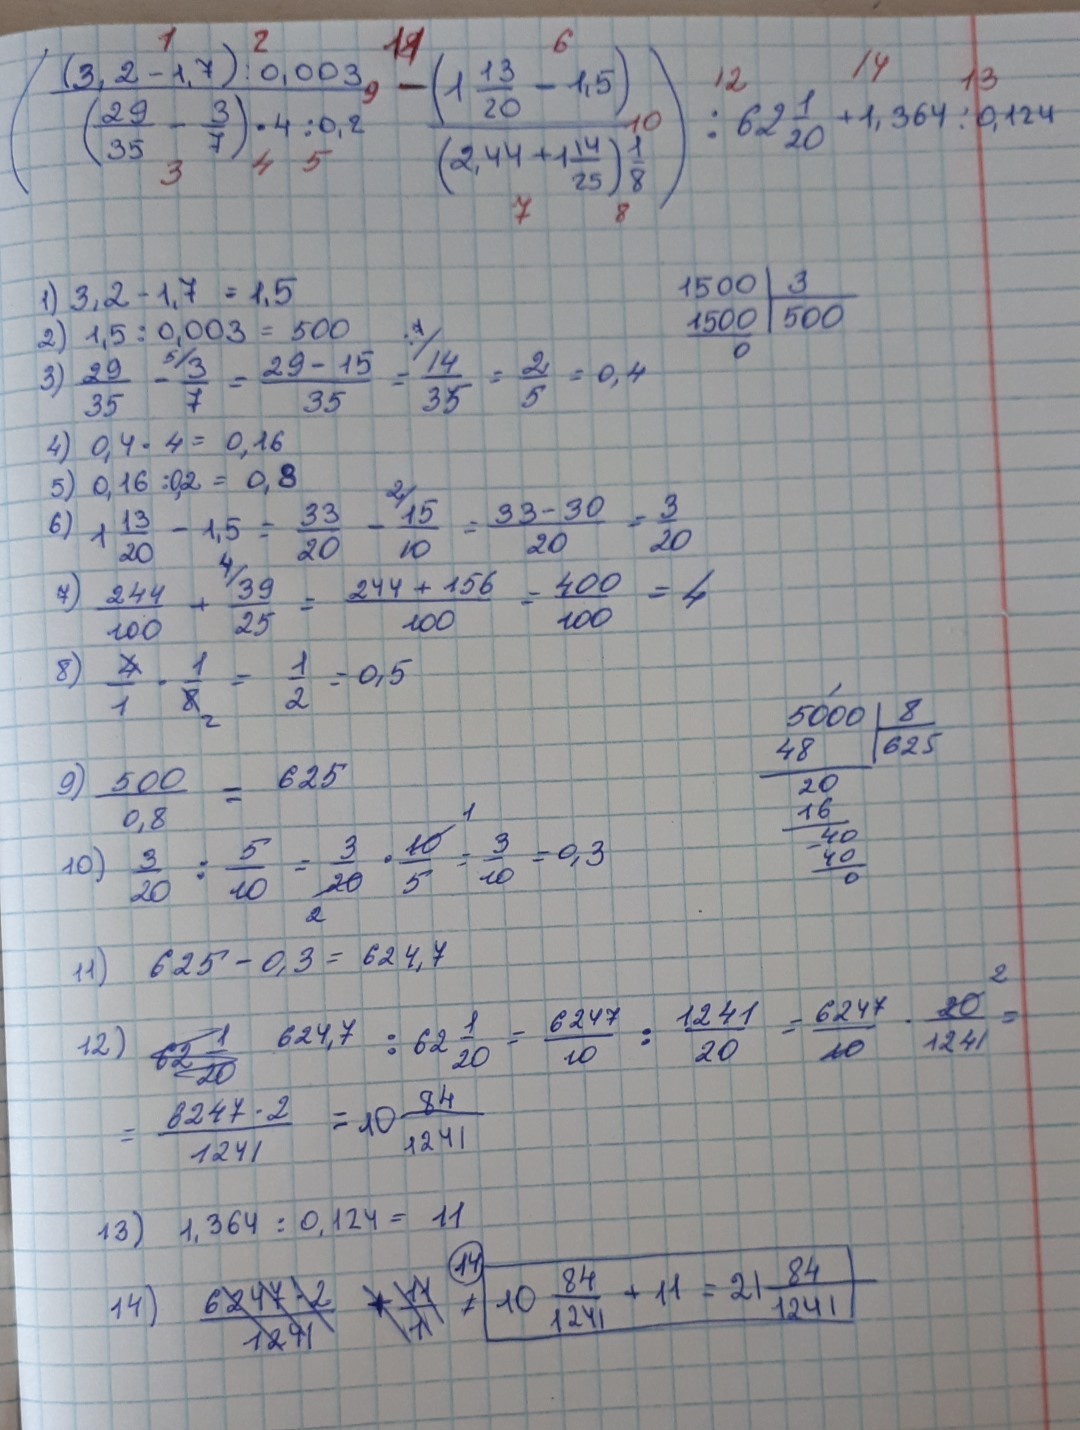 1 2 11 6 12 14 13
( (3,2 - 1,7) : 0,003 / (29/35 - 3/7) · 4 : 0,2 - (1 13/20 - 1,5) / (2,44 + 1 14/25) 1/8 ) : 62 1/20 + 1,364 : 0,124
9 10
3 4 5 7 8
1) 3,2 - 1,7 = 1,5
2) 1,5 : 0,003 = 500
1500 | 3
1500 | 500
0
3) 29/35 - 5/ 3/7 = 29 - 15/35 = :7/ 14/35 = 2/5 = 0,4
4) 0,4 · 4 = 0,16
5) 0,16 : 0,2 = 0,8
6) 1 13/20 - 1,5 = 33/20 - 2/ 15/10 = 33 - 30/20 = 3/20
7) 244/100 + 4/ 39/25 = 244 + 156/100 = 400/100 = 4
8) 4/1 · 1/8 2 = 1/2 = 0,5
5000 | 8
48 | 625
20
16
40
40
0
9) 500/0,8 = 625
10) 3/20 : 5/10 = 3/20 2 · 10 1/5 = 3/10 = 0,3
11) 625 - 0,3 = 624,7
12) 62 1/20 624,7 : 62 1/20 = 6247/10 : 1241/20 = 6247/10 · 20 2/1241 =
= 6247 · 2/1241 = 10 84/1241
13) 1,364 : 0,124 = 11
14) 6247 · 2/1241 + 11/1 = 14 10 84/1241 + 11 = 21 84/1241